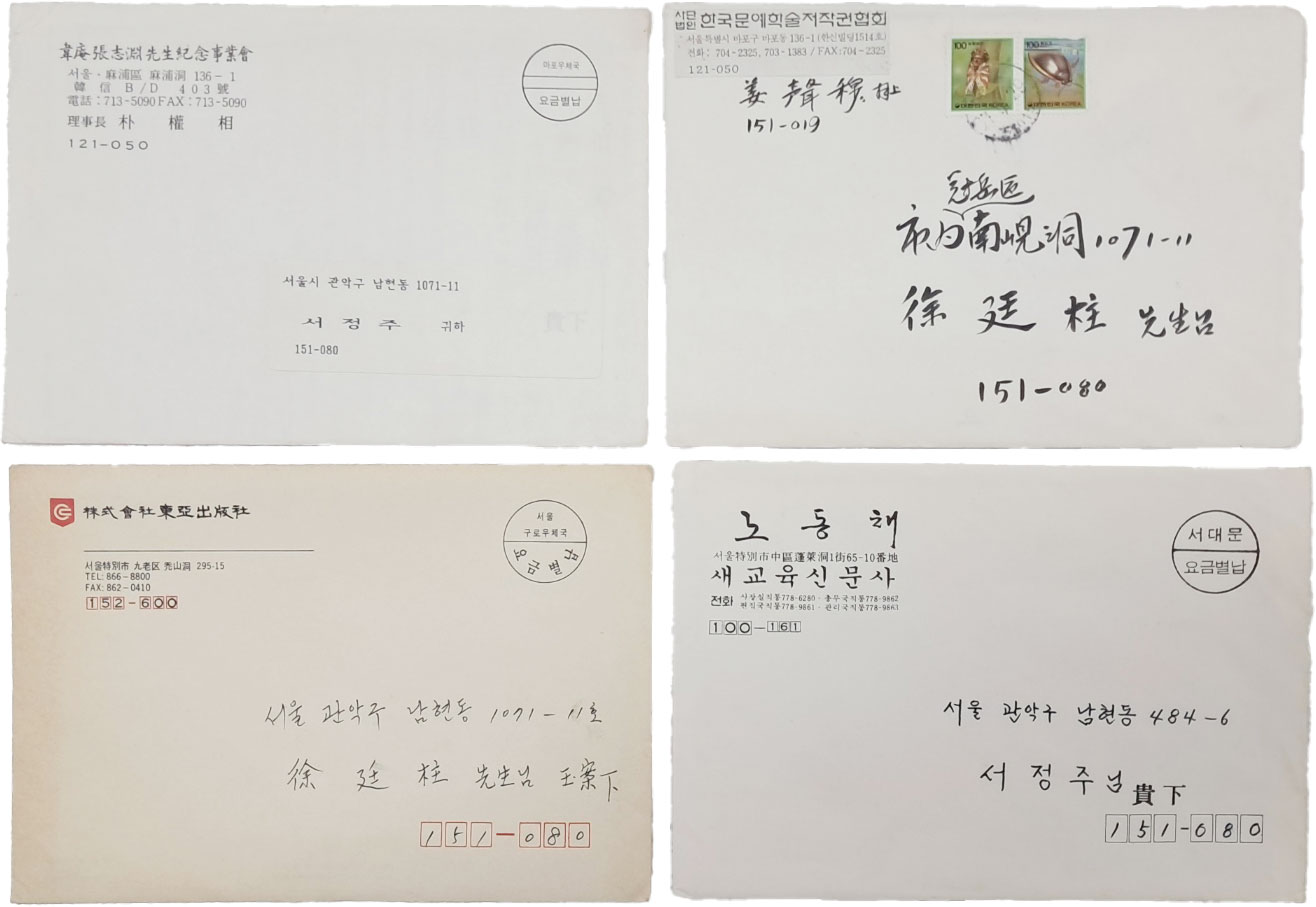 韋庵張志淵先生紀念事業會
서울·麻浦區 麻浦洞 136-1
韓信 B/D 403號
電話:713-5090 FAX:713-5090
理事長 朴權相
121-050
마포우체국
요금별납
서울시 관악구 남현동 1071-11
서정주 귀하
151-080
사단법인 한국문예학술저작권협회
서울특별시 마포구 마포동 136-1 (한신빌딩1514호)
전화: 704-2325, 703-1383 / FAX:704-2325
121-050
姜聲穆 拜上
151-019
100
대한민국 KOREA
100
대한민국 KOREA
冠岳區
市內南峴洞 1071-11
徐廷柱 先生님
151-080
株式會社東亞出版社
서울特別市 九老区 禿山洞 295-15
TEL: 866-8800
FAX: 862-0410
152-600
서울
구로우체국
요금별납
서울 관악구 남현동 1071-11호
徐廷柱 先生님 玉案下
151-080
노동채
서울特別市中區蓬萊洞1街65-10番地
새교육신문사
전화 사장실직통778-6280·총무국직통778-9862
편집국직통778-9861·관리국직통778-9863
100-161
서대문
요금별납
서울 관악구 남현동 484-6
서정주님 貴下
151-080